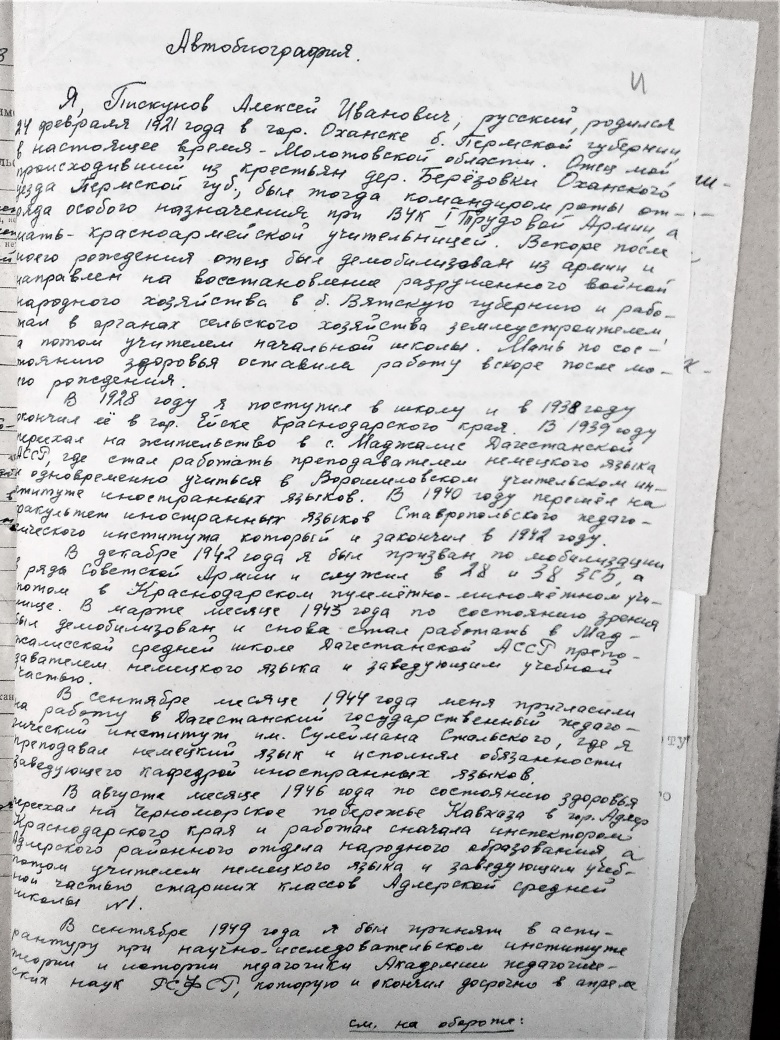 Автобиография.
Я, Пискунов Алексей Иванович, русский, родился
24 февраля 1921 года в гор. Оханске б. Пермской губернии
в настоящее время - Молотовской области. Отец мой
происходивший из крестьян дер. Берёзовки Оханского
уезда Пермской губ., был тогда командиром роты от-
ряда особого назначения при ВЧК I Трудовой Армии, а
мать - красноармейской учительницей. Вскоре после
моего рождения отец был демобилизован из армии и
направлен на восстановление разрушенного войной
народного хозяйства в б. Вятскую губернию и рабо-
тал в органах сельского хозяйства землеустроителем,
а потом учителем начальной школы. Мать по сос-
тоянию здоровья оставила работу вскоре после мо-
го рождения.
В 1928 году я поступил в школу и в 1938 году
окончил её в гор. Ейске Краснодарского края. В 1939 году
переехал на жительство в с. Маджалис Дагестанской
АССР, где стал работать преподавателем немецкого языка
и одновременно учиться в Ворошиловском учительском ин-
ституте иностранных языков. В 1940 году перешёл на
факультет иностранных языков Ставропольского педаго-
гического института который и закончил в 1942 году.
В декабре 1942 года я был призван по мобилизации
в ряды Советской Армии и служил в 28 и 38 ЗСП, а
потом в Краснодарском пулемётно-миномётном учи-
лище. В марте месяце 1943 года по состоянию зрения
был демобилизован и снова стал работать в Мад-
жалисской средней школе Дагестанской АССР препо-
давателем немецкого языка и заведующим учебной
частью.
В сентябре месяце 1944 года меня пригласили
на работу в Дагестанский государственный педаго-
гический институт им. Сулеймана Стальского, где я
преподавал немецкий язык и исполнял обязанности
заведующего кафедрой иностранных языков.
В августе месяце 1946 года по состоянию здоровья
переехал на Черноморское побережье Кавказа в гор. Адлер
Краснодарского края и работал сначала инспектором
Адлерского районного отдела народного образования, а
потом учителем немецкого языка и заведующим учеб-
ной частью старших классов Адлерской средней
школы №1.
В сентябре 1949 года я был принят в аспи-
рантуру при научно-исследовательском институте
теории и истории педагогики Академии педагогиче-
ских наук РСФСР, которую и окончил досрочно в апреле
см. на обороте: